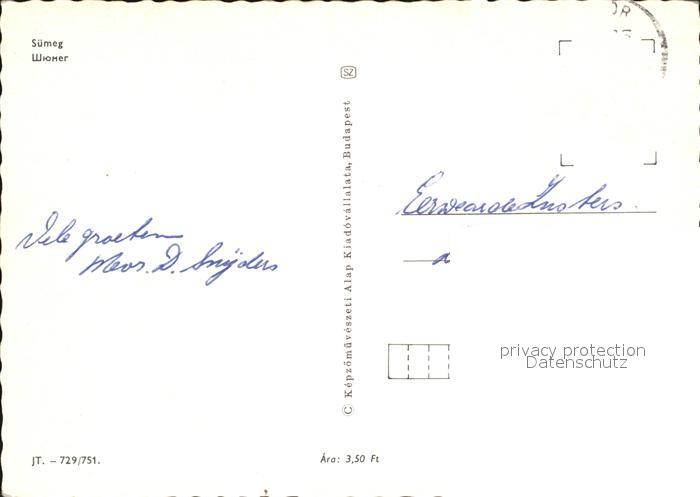 Sümeg
Шюмег
SZ
© Képzőművészeti Alap Kiadóvállalata, Budapest
Vele groeten
Mevr. D. Snijders
Eerwaarde Zusters.
privacy protection
Datenschutz
JT. – 729/751.
Ára: 3,50 Ft